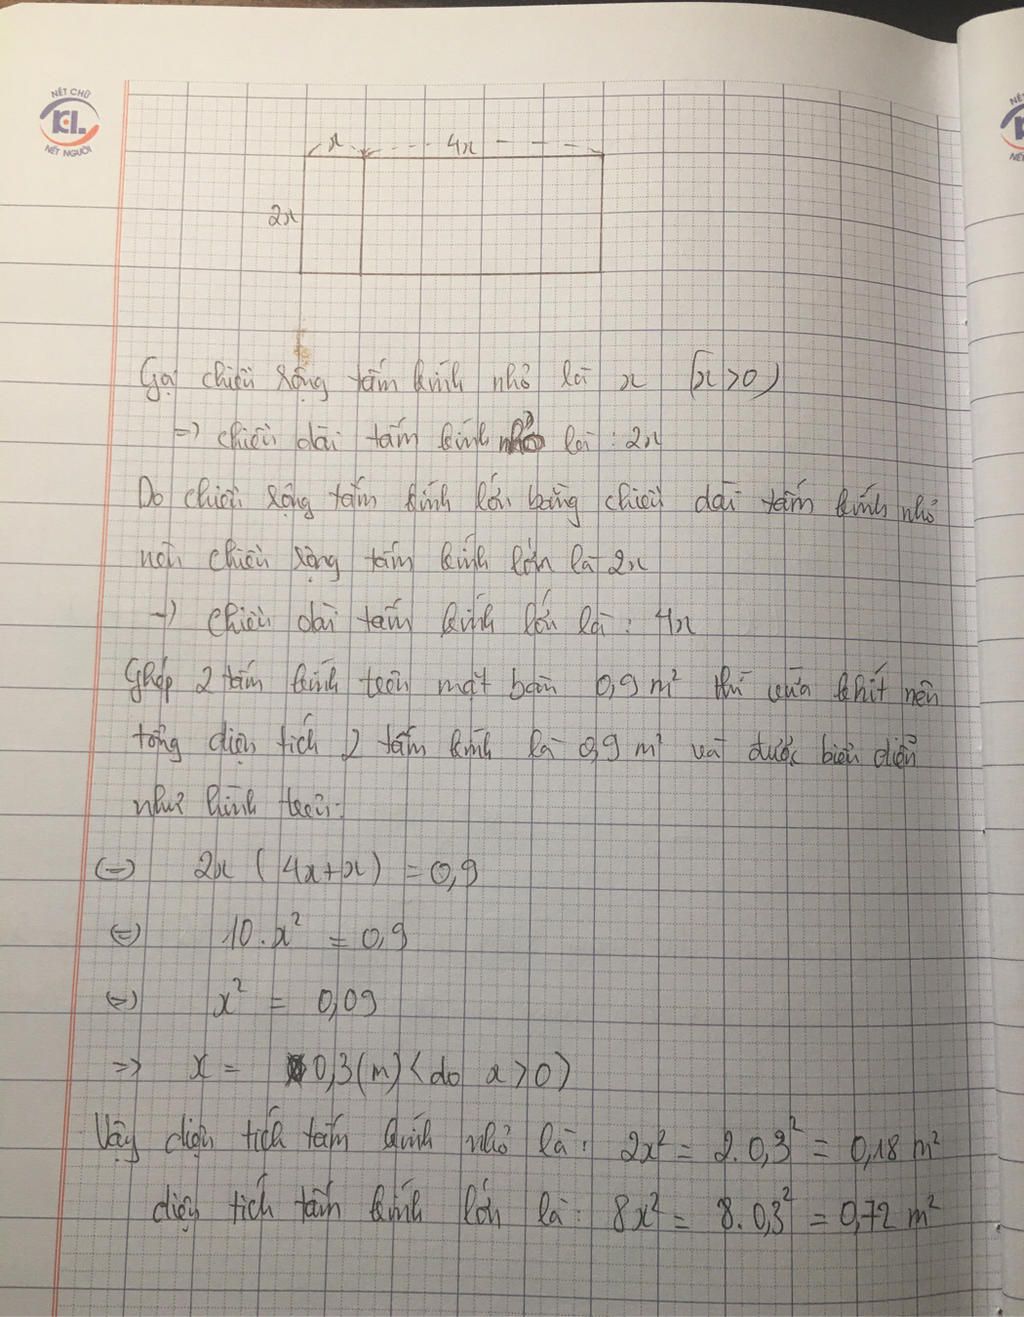 NÉT CHỮ
KL
NÉT NGƯỜI
x 4x
2x
Gọi chiều rộng tấm kính nhỏ là x (x > 0)
=> chiều dài tấm kính nhỏ là : 2x
Do chiều rộng tấm kính lớn bằng chiều dài tấm kính nhỏ
nên chiều rộng tấm kính lớn là 2x
-> chiều dài tấm kính lớn là : 4x
Ghép 2 tấm kính trên mặt bàn 0,9 m² thì vừa khít nên
tổng diện tích 2 tấm kính là 0,9 m² và được biểu diễn
như hình trên:
(=) 2x (4x+x) = 0,9
(=) 10.x² = 0,9
(=) x² = 0,09
=> x = 0,3 (m) < do x > 0)
Vậy diện tích tấm kính nhỏ là: 2x² = 2. 0,3² = 0,18 m²
diện tích tấm kính lớn là: 8x² = 8. 0,3² = 0,72 m²